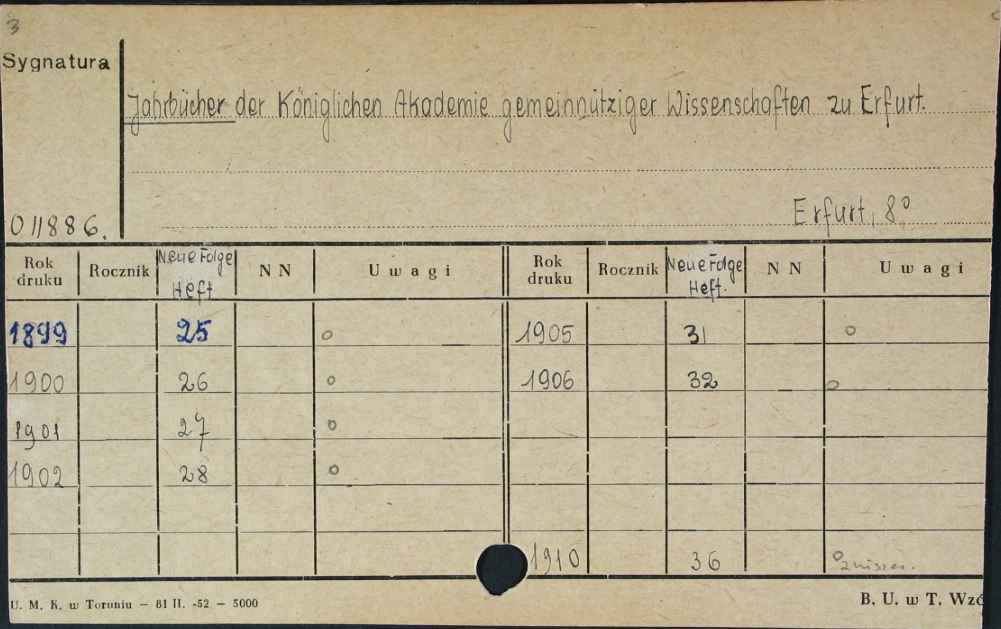 3
Sygnatura
Jahrbücher der Königlichen Akademie gemeinnütziger Wissenschaften zu Erfurt.
Erfurt, 8°
011886.
Rok druku Rocznik Neue Folge Heft NN Uwagi Rok druku Rocznik Neue Folge Heft. NN Uwagi
1899 25 o 1905 31 o
1900 26 o 1906 32 o
1901 27 o
1902 28 o
1910 36 o
U. M. K. w Toruniu – 81 II. -52 – 5000 B. U. w T. Wzó